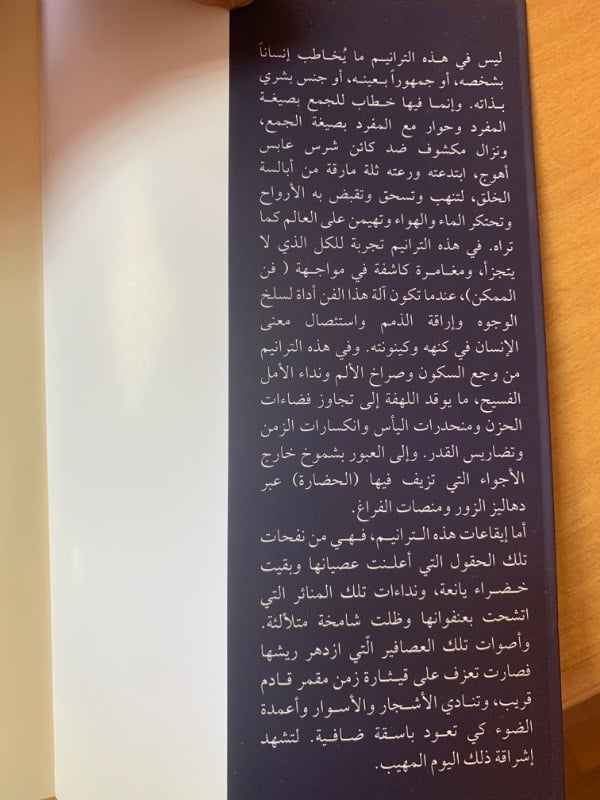 ليس في هذه الترانيم ما يُخاطب إنساناً
بشخصه، أو جمهوراً بعينه، أو جنس بشري
بذاته. وإنما فيها خطاب للجمع بصيغة
المفرد وحوار مع المفرد بصيغة الجمع،
ونزال مكشوف ضد كائن شرس عابس
أهوج، ابتدعته ورعته ثلة مارقة من أبالسة
الخلق، لتنهب وتسحق وتقبض به الأرواح
وتحتكر الماء والهواء وتهيمن على العالم كما
تراه. في هذه الترانيم تجربة للكل الذي لا
يتجزأ، ومغامرة كاشفة في مواجهة ( فن
الممكن)، عندما تكون آلة هذا الفن أداة لسلخ
الوجوه وإراقة الذمم واستئصال معنى
الإنسان في كنهه وكينونته. وفي هذه الترانيم
من وجع السكون وصراخ الألم ونداء الأمل
الفسيح، ما يوقد اللهفة إلى تجاوز فضاءات
الحزن ومنحدرات اليأس وانكسارات الزمن
وتضاريس القدر. وإلى العبور بشموخ خارج
الأجواء التي تزيف فيها (الحضارة) عبر
دهاليز الزور ومنصات الفراغ.
أما إيقاعات هذه الترانيم، فهي من نفحات
تلك الحقول التي أعلنت عصيانها وبقيت
خضراء يانعة، ونداءات تلك المنائر التي
اتشحت بعنفوانها وظلت شامخة متلألئة.
وأصوات تلك العصافير الّتي ازدهر ريشها
فصارت تعزف على قيثارة زمن مقمر قادم
قريب، وتنادي الأشجار والأسوار وأعمدة
الضوء كي تعود باسقة ضافية. لتشهد
إشراقة ذلك اليوم المهيب.